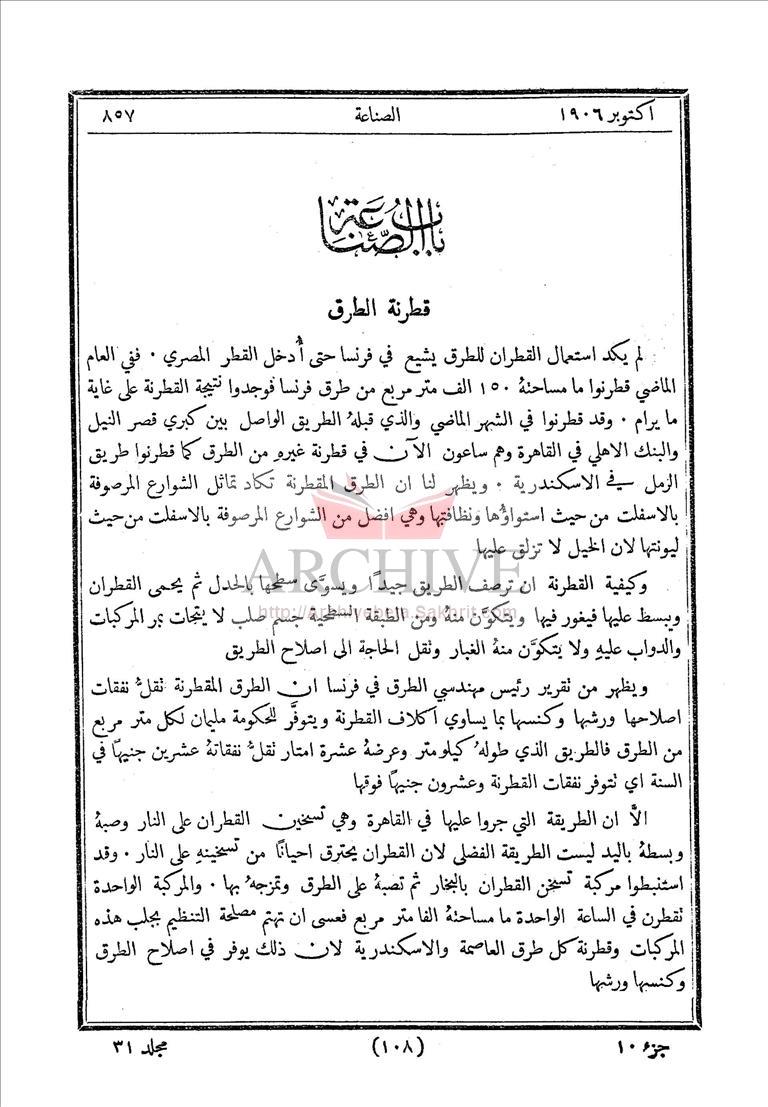 اكتوبر ١٩٠٦ الصناعة ٨٥٧
باب الصناعة
قطرنة الطرق
لم يكد استعمال القطران للطرق يشيع في فرنسا حتى أُدخل القطر المصري . ففي العام
الماضي قطرنوا ما مساحتهُ ١٥٠ الف متر مربع من طرق فرنسا فوجدوا نتيجة القطرنة على غاية
ما يرام . وقد قطرنوا في الشهر الماضي والذي قبلهُ الطريق الواصل بين كبري قصر النيل
والبنك الاهلي في القاهرة وهم ساعون الآن في قطرنة غيره من الطرق كما قطرنوا طريق
الرمل في الاسكندرية . ويظهر لنا ان الطرق المقطرنة تكاد تماثل الشوارع المرصوفة
بالاسفلت من حيث استواؤُها ونظافتها وهي افضل من الشوارع المرصوفة بالاسفلت من حيث
ليونتها لان الخيل لا تزلق عليها
ARCHIVE
وكيفية القطرنة ان ترصف الطريق جيدًا ويسوَّى سطحها بالحدل ثم يحمى القطران
http://Archivebeta.Sakhrit.com
ويبسط عليها فيغور فيها ويتكوَّن منهُ ومن الطبقة السطحية جسم صلب لا يتحات بمر المركبات
والدواب عليهِ ولا يتكوَّن منهُ الغبار وتقل الحاجة الى اصلاح الطريق
ويظهر من تقرير رئيس مهندسي الطرق في فرنسا ان الطرق المقطرنة تقلُّ نفقات
اصلاحها ورشها وكنسها بما يساوي اكلاف القطرنة ويتوفَّر للحكومة مليمان لكل متر مربع
من الطرق فالطريق الذي طولهُ كيلومتر وعرضهُ عشرة امتار تقلُّ نفقاتهُ عشرين جنيهًا في
السنة اي تتوفر نفقات القطرنة وعشرون جنيهًا فوقها
الاَّ ان الطريقة التي جروا عليها في القاهرة وهي تسخين القطران على النار وصبهُ
وبسطهُ باليد ليست الطريقة الفضلى لان القطران يحترق احيانًا من تسخينهِ على النار . وقد
استنبطوا مركبة تسخن القطران بالبخار ثم تصبهُ على الطرق وتمزجهُ بها . والمركبة الواحدة
تقطرن في الساعة الواحدة ما مساحتهُ الفا متر مربع فعسى ان تهتم مصلحة التنظيم بجلب هذه
المركبات وقطرنة كل طرق العاصمة والاسكندرية لان ذلك يوفر في اصلاح الطرق
وكنسها ورشها
جزء ١٠ (١٠٨) مجلد ٣١